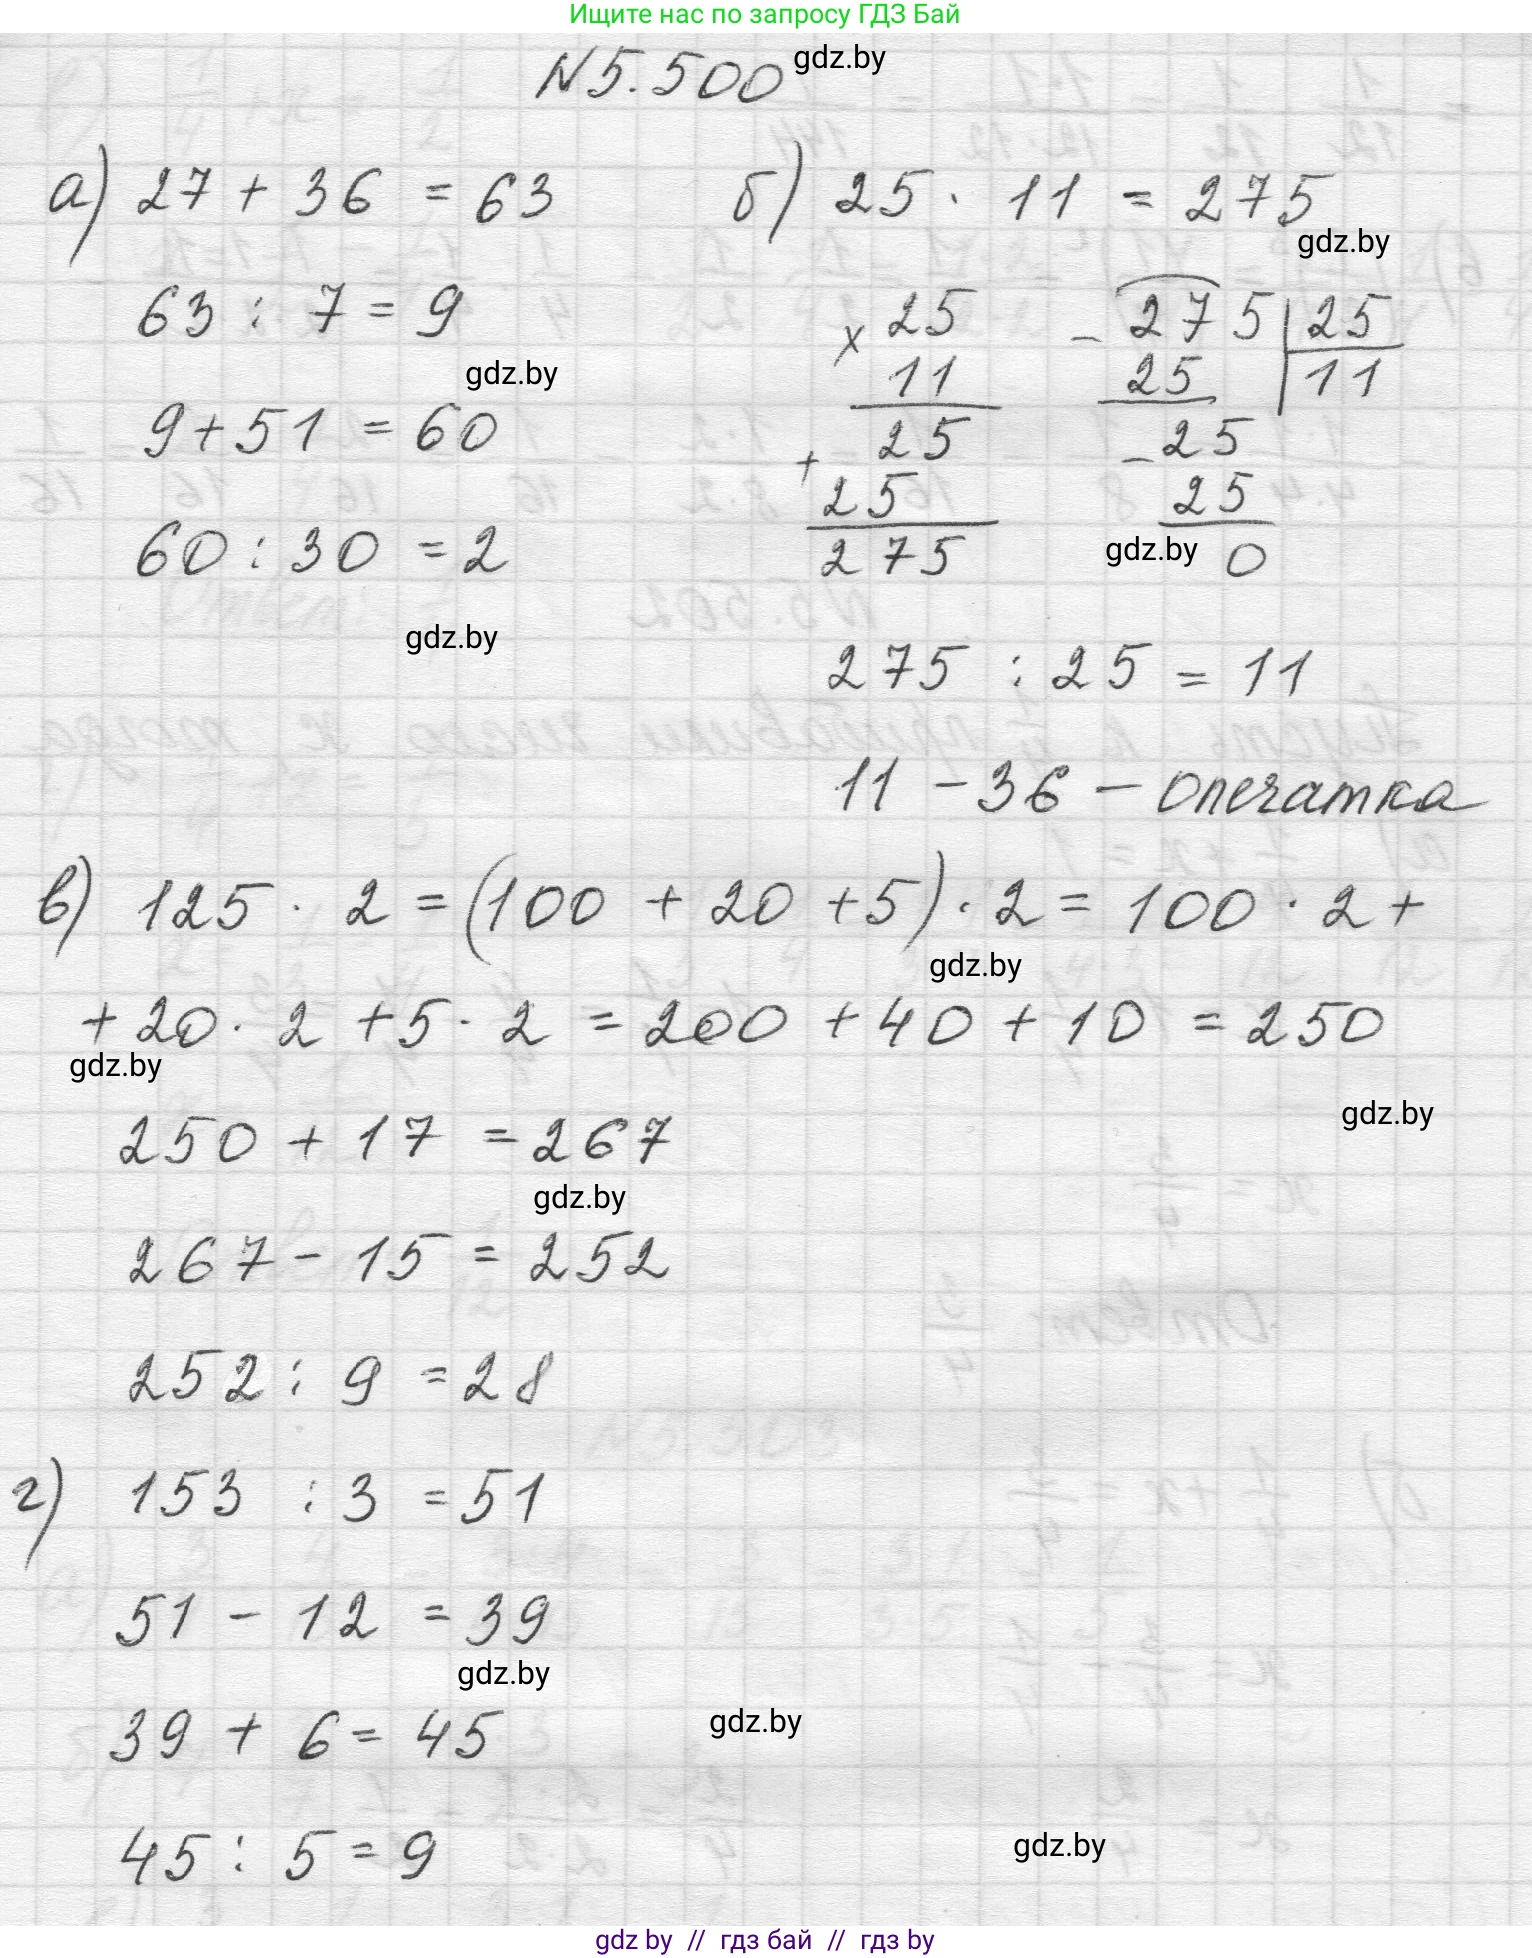 Ищите нас по запросу ГДЗ Бай
N5.500
gdz.by
а) 27 + 36 = 63
63 : 7 = 9
gdz.by
9 + 51 = 60
60 : 30 = 2
gdz.by
б) 25 · 11 = 275
gdz.by
× 25
11
25
+
25
275
- 275 | 25
25 | 11
- 25
25
gdz.by
0
275 : 25 = 11
11 - 36 - опечатка
в) 125 · 2 = (100 + 20 + 5) · 2 = 100 · 2 +
gdz.by
+ 20 · 2 + 5 · 2 = 200 + 40 + 10 = 250
gdz.by
gdz.by
250 + 17 = 267
gdz.by
267 - 15 = 252
252 : 9 = 28
г) 153 : 3 = 51
51 - 12 = 39
gdz.by
39 + 6 = 45
gdz.by
45 : 5 = 9
gdz.by
gdz by // гдз бай // гдз by